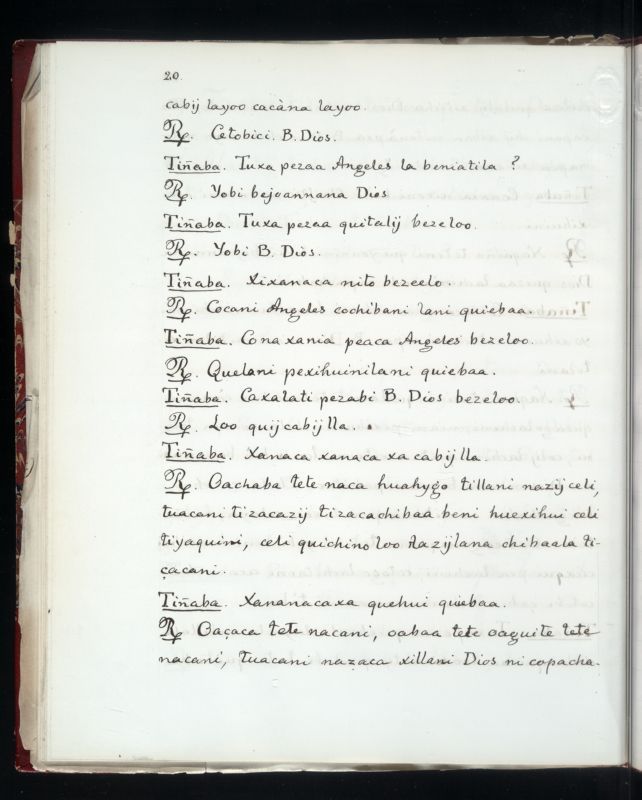 20.
cabij layoo cacàna layoo.
R. Cetobici. B. Dios.
Tiñaba. Tuxa pezaa Angeles la beniatila ?
R. Yobi bejoannana Dios
Tiñaba. Tuxa pezaa quitalij bezeloo.
R. Yobi B. Dios.
Tiñaba. Xixanaca nito bezeelo.
R. Cocani Angeles cochibani lani quiebaa.
Tiñaba. Cona xania peaca Angeles bezeloo.
R. Quelani pexihuinilani quiebaa.
Tiñaba. Caxalati pezabi B. Dios bezeloo.
R. Loo quij cabij lla.
Tiñaba. Xanaca xanaca xa cabij lla.
R. Oachaba tete naca huahygo tillani nazij celi,
tuacani tizacazij tizacachibaa beni huexihui celi
tiyaquini, celi quichino loo tazijlana chibaala ti-
çacani.
Tiñaba. Xananacaxa quehui quiebaa.
R. Oaçaca tete nacani, oabaa tete oaguite tete
nacani, tuacani nazaca xillani Dios ni copacha.